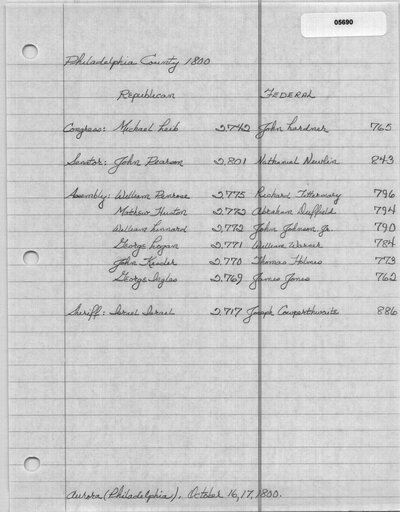 05690
Philadelphia County 1800
Republican FEDERAL
Congress: Michael Leib 2,742 John Lardner 765
Senator: John Pearson 2,801 Nathaniel Newlin 843
Assembly: William Penrose 2,775 Richard Tittermary 796
Mathew Huston 2,772 Abraham Duffield 794
William Linnard 2,772 John Johnson Jr. 790
George Logan 2,771 William Warner 784
John Kessler 2,770 Thomas Holmes 773
George Ingles 2,769 James Jones 762
Sheriff: Israel Israel 2,717 Joseph Cowperthwaite 886
Aurora (Philadelphia). October 16, 17, 1800.